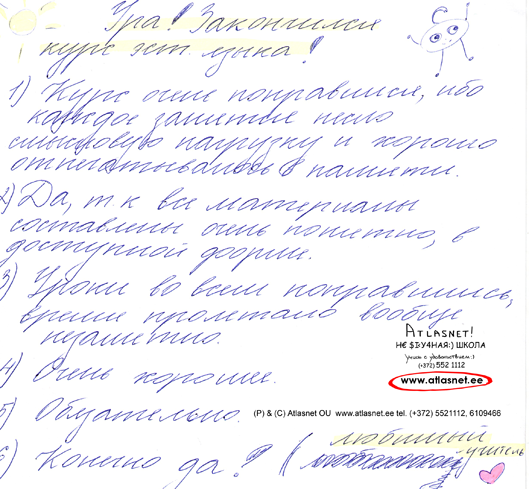 Ура! Закончился
курс эст. языка!
1) Курс очень понравился, ибо
каждое занятие несло
смысловую нагрузку и хорошо
отпечатывалось в памяти.
2) Да, т к все материалы
составлены очень понятно, в
доступной форме.
3) Уроки во всем понравились,
время пролетало вообще
незаметно.
4) Очень хорошее.
5) Обязательно.
6) Конечно да! (любимый
учитель
ATLASNET!
НЕ $БУ4НАЯ:) ШКОЛА
Учим с удовольствием:)
(+372) 552 1112
www.atlasnet.ee
(P) & (C) Atlasnet OU www.atlasnet.ee tel. (+372) 5521112, 6109466